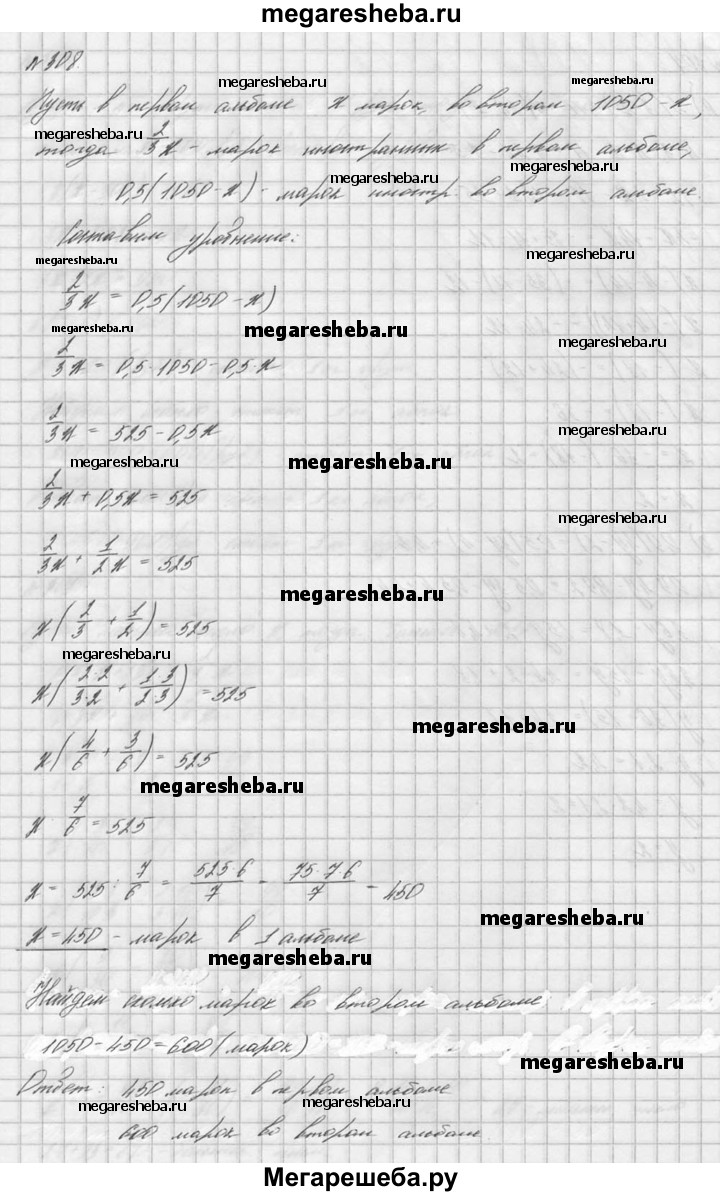 megaresheba.ru
№ 308
megaresheba.ru
megaresheba.ru
Пусть в первом альбоме x марок, во втором 1050 - x,
megaresheba.ru
тогда 2/3 x - марок иностранных в первом альбоме,
megaresheba.ru
megaresheba.ru
0,5(1050 - x) - марок иностр. во втором альбоме
Составим уравнение:
megaresheba.ru
megaresheba.ru
2/3 x = 0,5(1050 - x)
megaresheba.ru
megaresheba.ru
megaresheba.ru
2/3 x = 0,5 · 1050 - 0,5 · x
2/3 x = 525 - 0,5x
megaresheba.ru
megaresheba.ru
megaresheba.ru
2/3 x + 0,5x = 525
megaresheba.ru
2/3 x + 1/2 x = 525
megaresheba.ru
x(2/3 + 1/2) = 525
megaresheba.ru
x(2·2/3·2 + 1·3/2·3) = 525
megaresheba.ru
x(4/6 + 3/6) = 525
megaresheba.ru
x · 7/6 = 525
x = 525 : 7/6 = 525·6/7 = 75·7·6/7 = 450
megaresheba.ru
x = 450 - марок в 1 альбоме
megaresheba.ru
Найдем сколько марок во втором альбоме:
1050 - 450 = 600 (марок)
megaresheba.ru
Ответ: 450 марок в первом альбоме
megaresheba.ru
megaresheba.ru
600 марок во втором альбоме.
Мегарешеба.ру